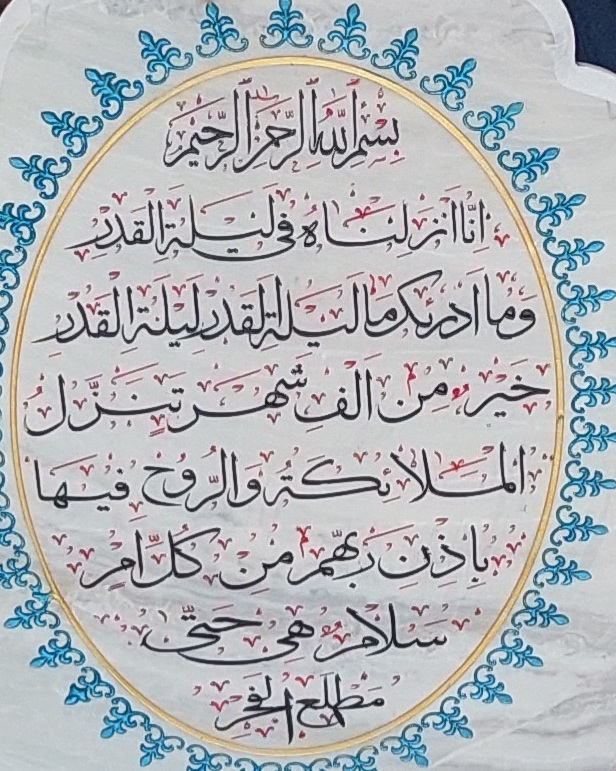 بسم الله الرحمن الرحيم
انا انزلناه في ليلة القدر
وما ادريك ما ليلة القدر ليلة القدر
خير من الف شهر تنزل
الملائكة والروح فيها
باذن ربهم من كل امر
سلام هي حتى
مطلع الفجر